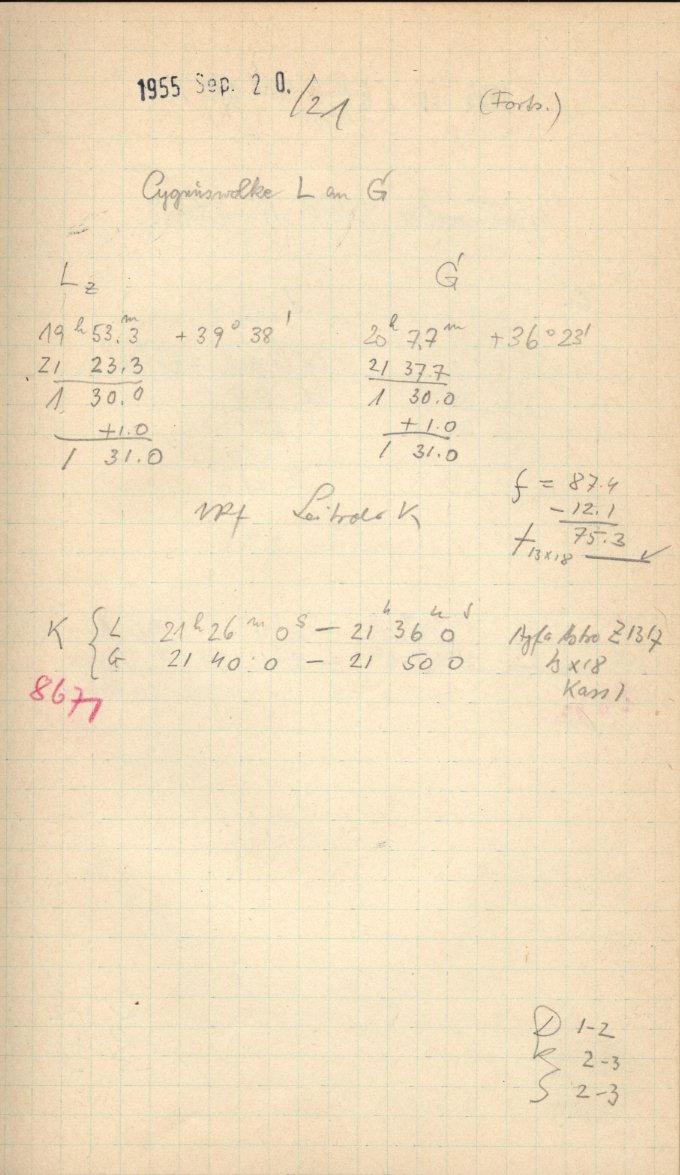 1955 Sep. 20./21 (Forts.)
Cygnuswolke L an G'
L_z G'
19^h 53.^m3 +39° 38' 20^h 7.7^m +36° 23'
21 23.3 21 37.7
1 30.0 1 30.0
+1.0 +1.0
1 31.0 1 31.0
f = 87.4
-12.1
f_13x18 75.3
Leitrohr K
K { L 21^h 26^m 0^s – 21^h 36^m 0^s Agfa Astro Z 1317
G 21 40 0 – 21 50 0 13x18
8671 Kass 1.
D 1-2
K 2-3
S 2-3